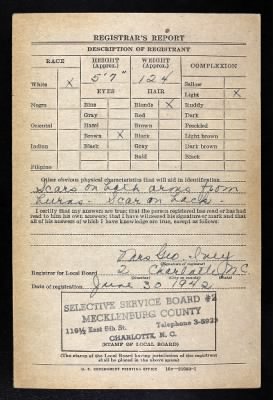 REGISTRAR'S REPORT
DESCRIPTION OF REGISTRANT
RACE HEIGHT (Approx.) WEIGHT (Approx.) COMPLEXION
5'7" 124 Sallow
White X EYES HAIR Light X
Negro Blue Blonde X Ruddy
Gray Red Dark
Oriental Hazel Brown Freckled
Brown X Black Light brown
Indian Black Gray Dark brown
Bald Black
Filipino
Other obvious physical characteristics that will aid in identification
Scars on both arms from
burns. Scar on back.
I certify that my answers are true; that the person registered has read or has had
read to him his own answers; that I have witnessed his signature or mark and that
all of his answers of which I have knowledge are true, except as follows:
Mrs Geo. Ivey
Registrar for Local Board 2 Charlotte, N.C.
Date of registration June 30 1942
SELECTIVE SERVICE BOARD #2
MECKLENBURG COUNTY
116½ East 5th St. Telephone
CHARLOTTE, N. C.
(STAMP OF LOCAL BOARD)
(The stamp of the Local Board having jurisdiction of the registrant
shall be placed in the above space.)
U. S. GOVERNMENT PRINTING OFFICE